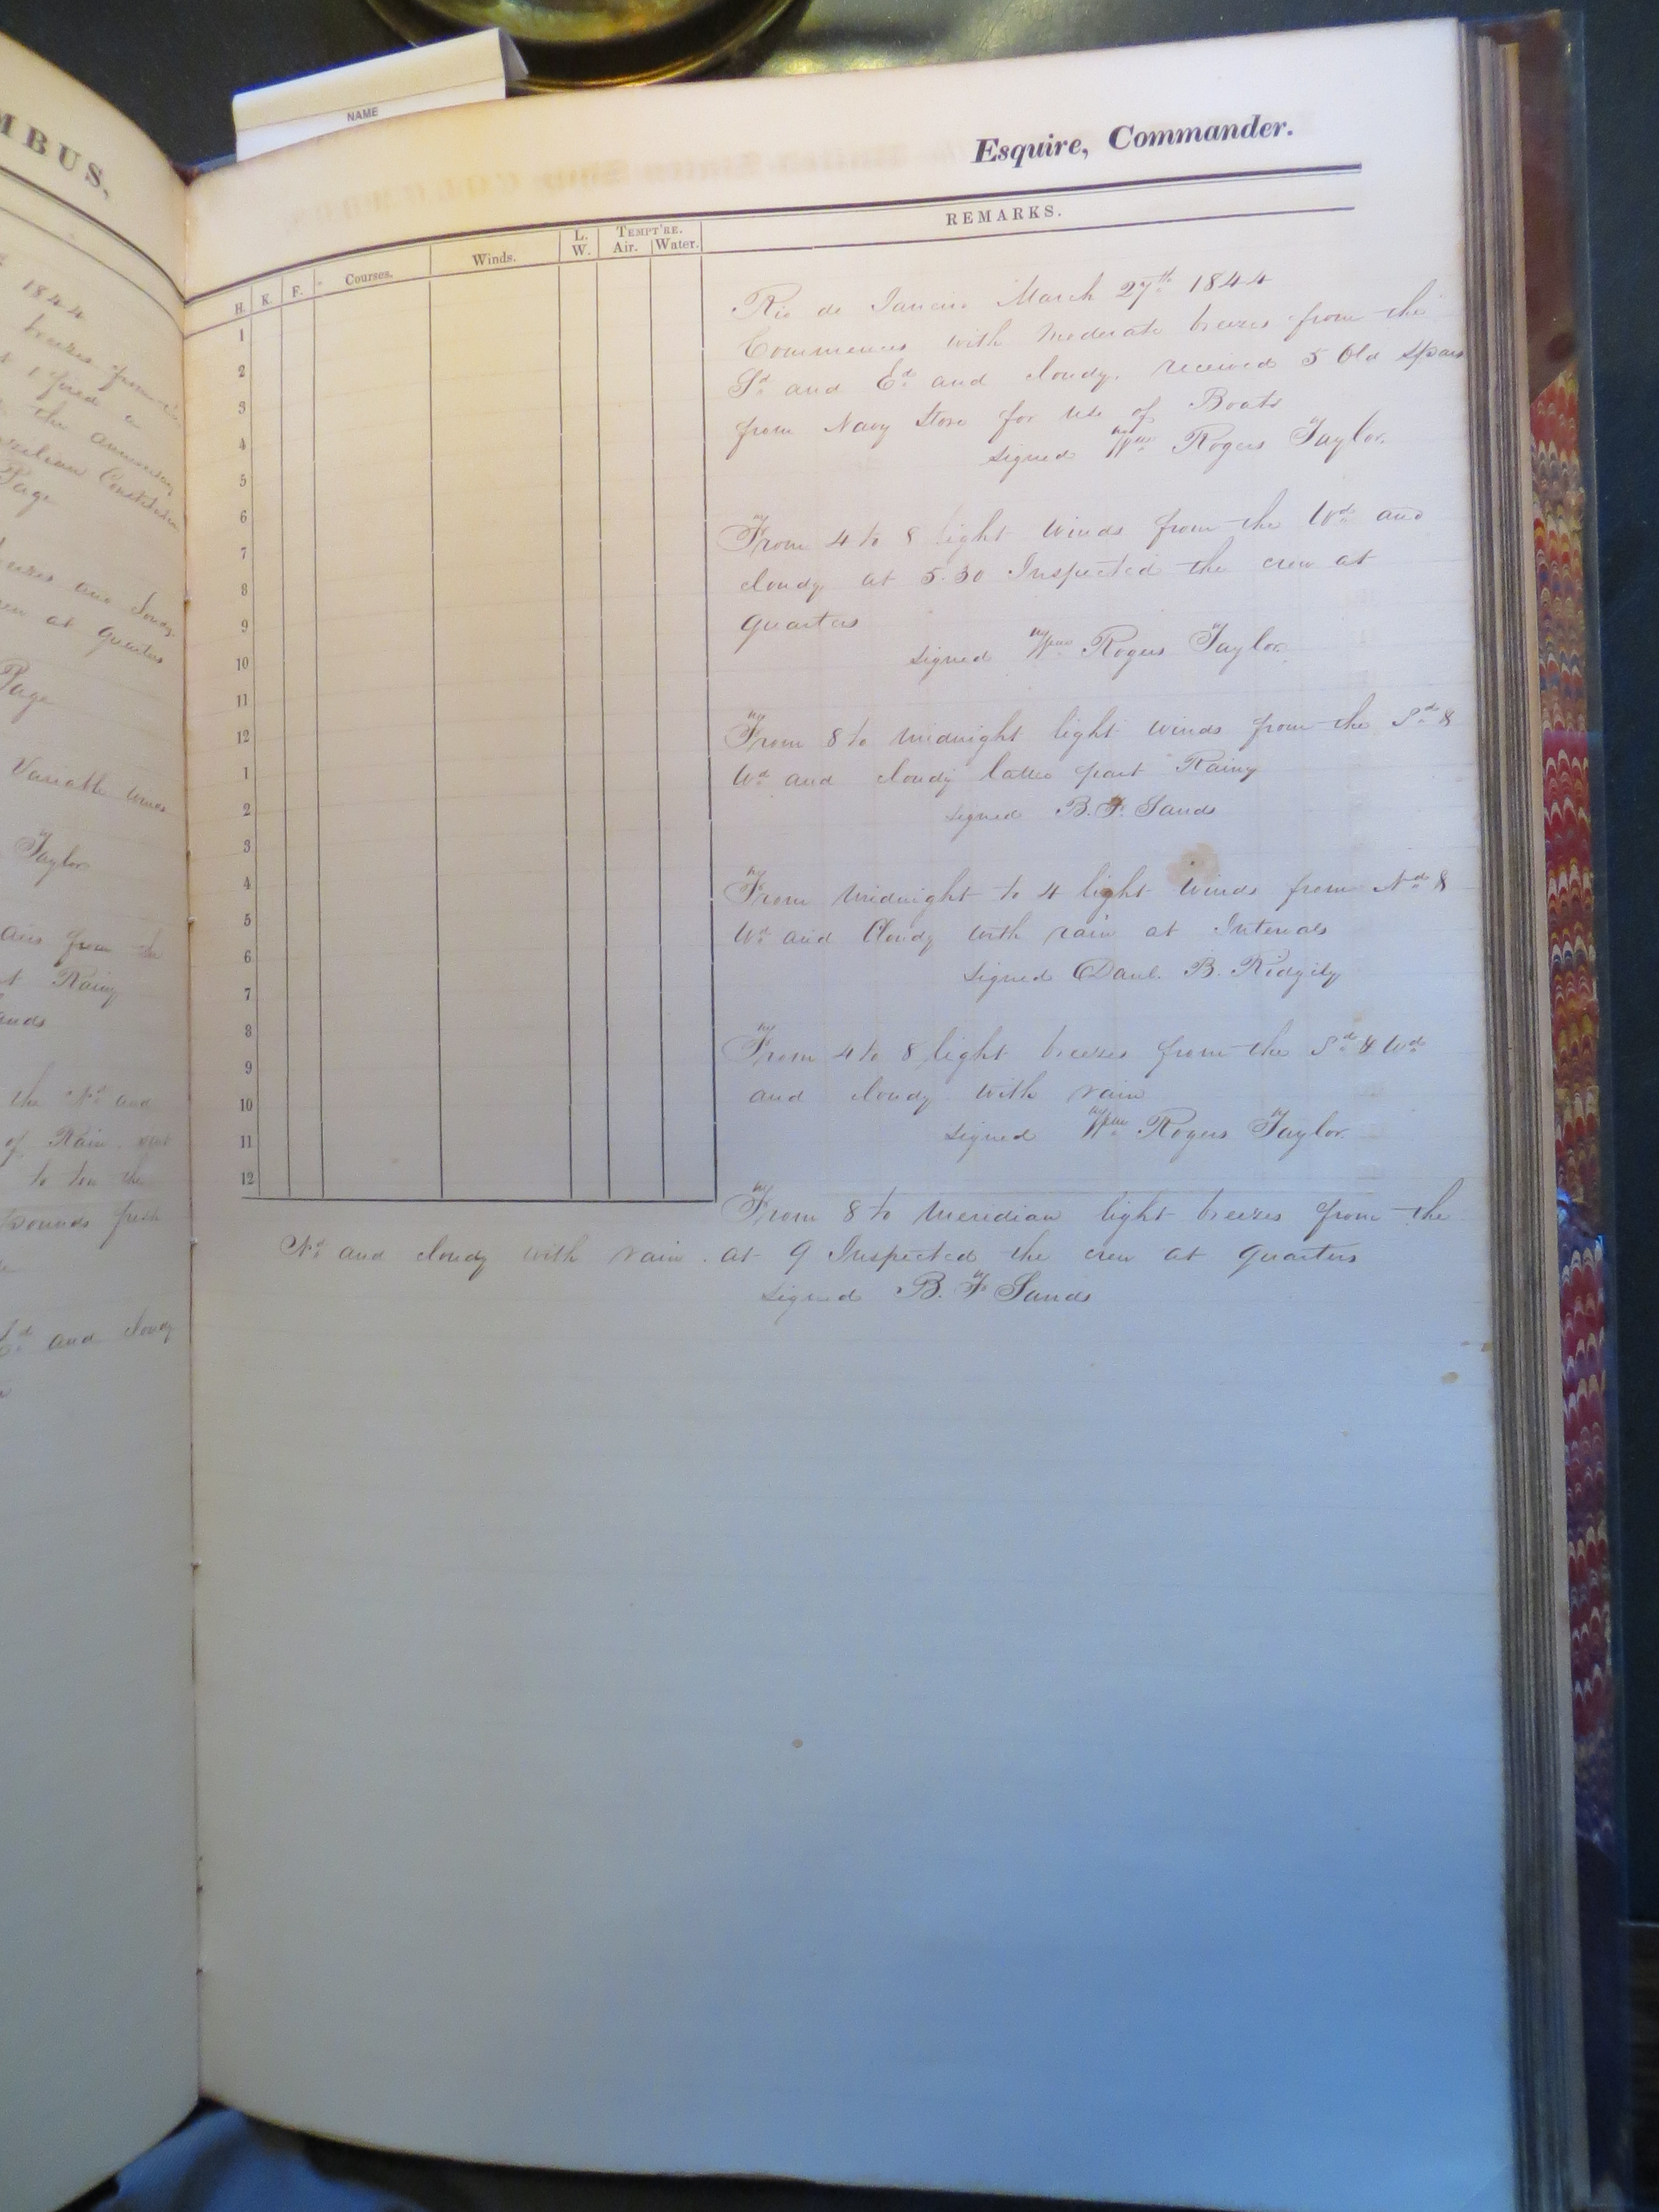 MBUS.
1844
breezes from the
1 fired a
the anniversary
Constitution
Page
and cloudy
at quarters
Page
Variable winds
Taylor
airs from the
Rainy
ands
the Nd and
of Rain
to ton the
pounds fresh
and cloudy
NAME
Esquire, Commander.
H. K. F. Courses. Winds. L. W. Tempt're. Air. Water. REMARKS.
1
2
3
4
5
6
7
8
9
10
11
12
1
2
3
4
5
6
7
8
9
10
11
12
Rio de Janeiro March 27th 1844
Commences with moderate breezes from the
Sd and Ed and cloudy. received 5 Old Spars
from Navy Store for use of Boats
signed Wm Rogers Taylor.
From 4 to 8 light winds from the Wd and
cloudy at 5.30 Inspected the crew at
quarters
signed Wm Rogers Taylor.
From 8 to midnight light winds from the Sd &
Wd and cloudy latter part Rainy
signed B. F. Sands
From midnight to 4 light winds from Nd &
Wd and Cloudy with rain at Intervals
signed Danl. B. Ridgely
From 4 to 8 light breezes from the Sd & Wd
and cloudy with rain
signed Wm Rogers Taylor.
From 8 to Meridian light breezes from the
Nd and cloudy with rain. at 9 Inspected the crew at quarters
signed B. F Sands